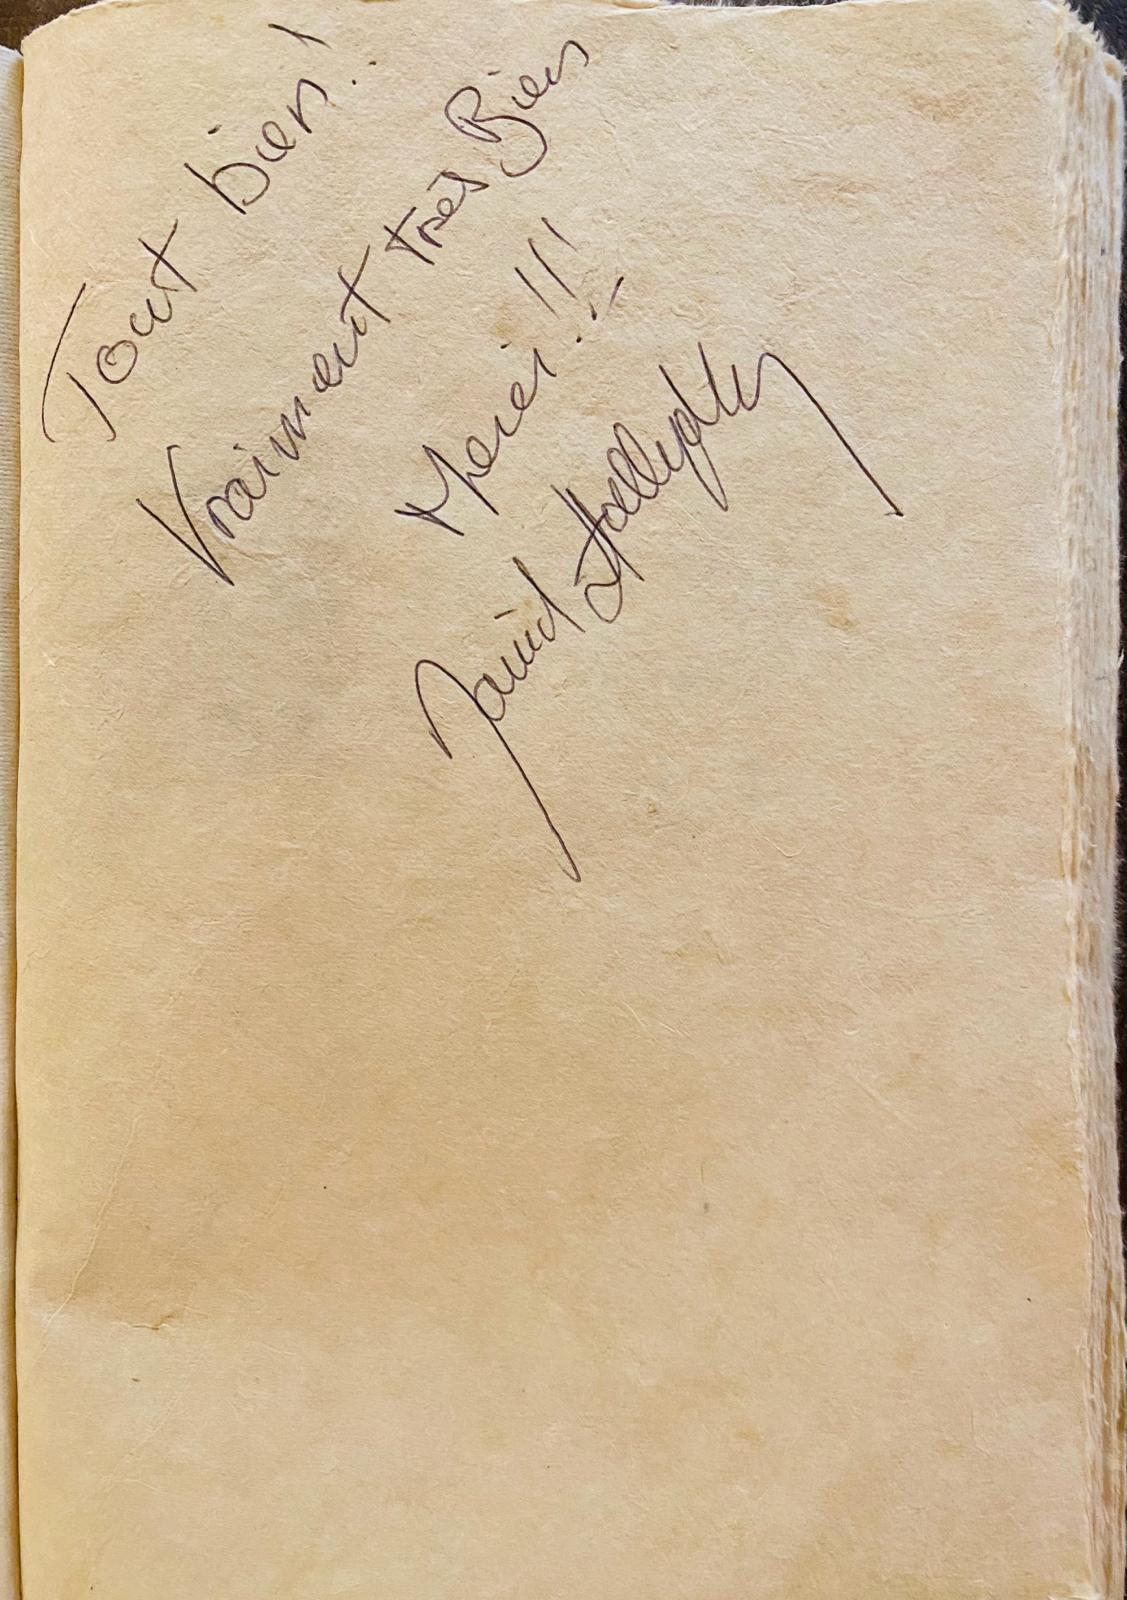 Tout bien !
Vraiment très Bien
Merci !!!
David Hallyday